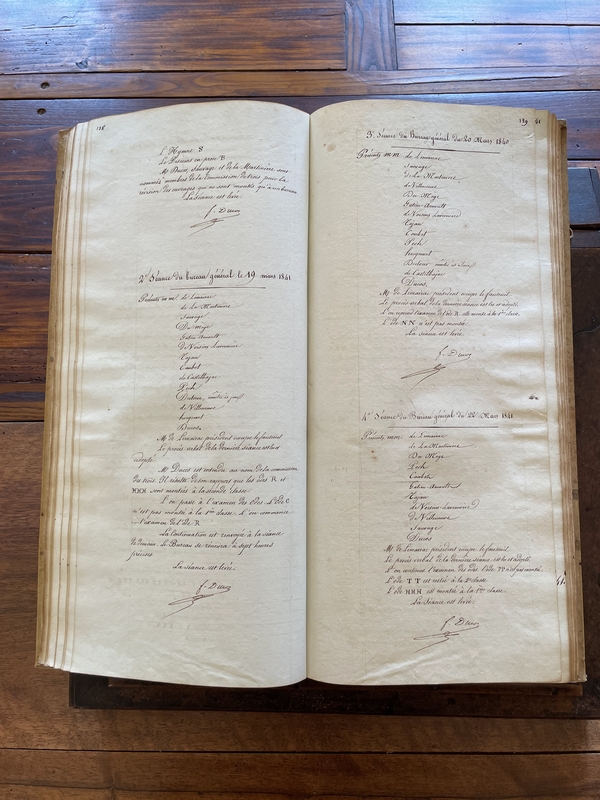 138
L'Hymne 8
Le Discours en prose B
Mr Ducos, Sauvage et de la Martinière sont
nommés membres de la Commission des trois pour la
révision des ouvrages qui ne sont montés qu'au bureau
La séance est levée.
f. Ducos
2e Séance du bureau général le 19 mars 1841
Présents m.m. de Limairac
de La Martinière
Sauvage
Du Mège
Gatien Arnoult
de Voisins Lavernière
Cajan
Caubet
de Castelbajac
Pech
de Villeneuve
Ducos
Mr de Limairac président occupe le fauteuil
Le procès verbal de la dernière séance est lu et
adopté.
Mr Ducos est entendu au nom de la commission
des trois. Il résulte de son rapport que les odes R et
HHH sont montées à la seconde classe
L'on passe à l'examen des Odes. L'Ode C
n'est pas montée à la 1ère classe. L'on commence
l'examen de l'Ode R
La continuation est renvoyée à la séance
de demain. Le Bureau se réunira à sept heures
précises
La séance est levée.
f. Ducos
139 61
3e Séance du Bureau général du 20 Mars 1840
Présents m.m. de Limairac
Sauvage
de La Martinière
de Villeneuve
Du Mège
Gatien Arnoult
de Voisins Lavernière
Cajan
Caubet
Pech
de Castelbajac
Ducos.
Mr de Limairac président occupe le fauteuil.
Le procès verbal de la dernière séance est lu et adopté.
L'on reprend l'examen de l'ode R. elle monte à la 1ère classe.
L'Ode NN n'est pas montée
La séance est levée.
f. Ducos
4e Séance du Bureau général du 22 Mars 1841
Présents m.m. de Limairac
de La Martinière
Du Mège
Pech
Caubet
Gatien Arnoult
Cajan
de Voisins Lavernière
de Villeneuve
Sauvage
Ducos
Mr de Limairac président occupe le fauteuil.
Le procès verbal de la dernière séance est lu et adopté.
L'on continue l'examen des odes. L'ode PP n'est pas montée.
L'ode TT est restée à la 2e classe
L'ode HHH est montée à la 1ère classe
La Séance est levée.
f. Ducos